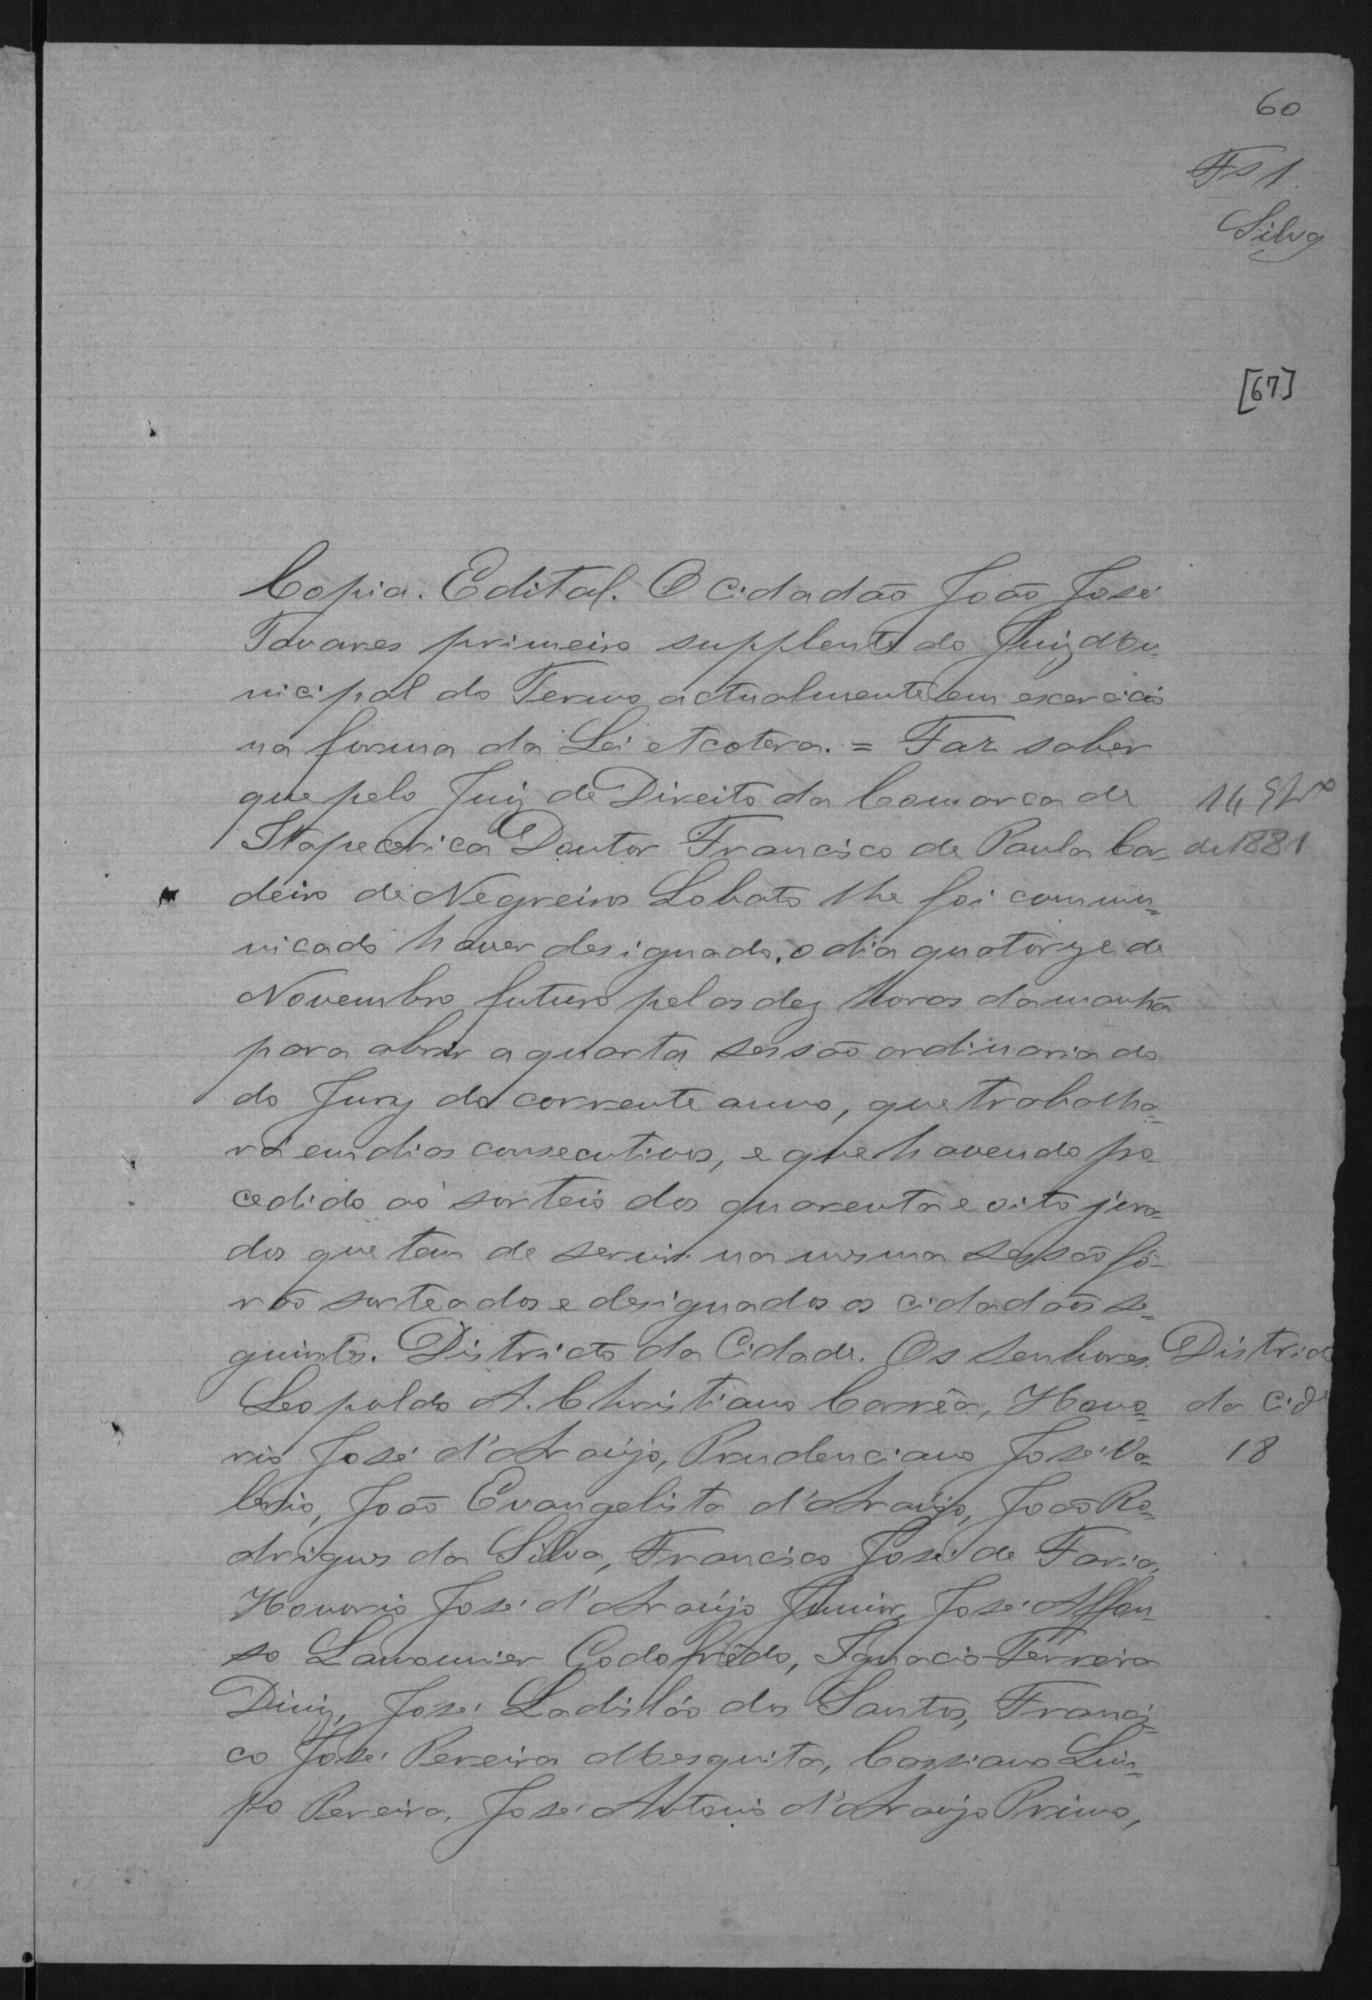 60
Fs 1
Silva
[67]
Copia. Edital. O cidadão João José
Tavares primeiro supplente do Juiz Mu-
nicipal do Termo actualmente em exercicio
na forma da Lei etcotera. = Faz saber
que pelo Juiz de Direito da Comarca de
14 9br.º
Itapecerica Doutor Francisco de Paula Cor-
de 1881
deiro de Negreiros Lobato lhe foi commu-
nicado haver designado, o dia quatorze de
Novembro futuro pelas dez horas da manhã
para abrir a quarta sessão ordinaria do
do Jury do corrente anno, que trabalha-
rá em dias consecutivos, e que havendo pro-
cedido ao sorteio dos quarenta e oito jura-
dos que tem de servir na mesma sessão fô-
rão sorteados e designados os cidadãos se-
guintes. Districto da Cidade. Os Senhores
Districto
Leopoldo A. Christiano Corrêa, Hono-
da Cid.e
rio José d'Araújo, Prudenciano José Va-
18
lerio, João Evangelista d'Araújo, João Ro-
drigues da Silva, Francisco José de Faria,
Honorio José d'Araújo Junior, José Affon-
so Lamounier Godofredo, Ignacio Ferreira
Diniz, José Ladisláo dos Santos, Francis-
co José Pereira Mesquita, Cassiano Lim-
po Pereira, José Antonio d'Araujo Primo,